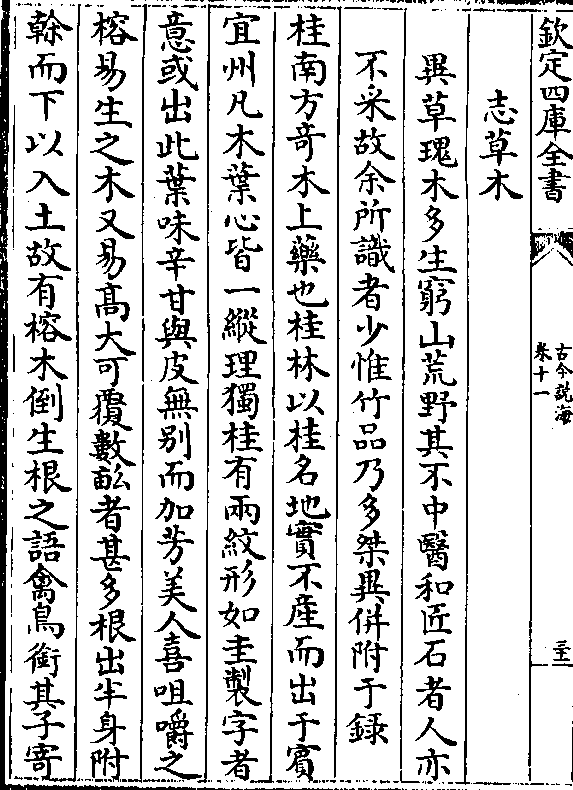 欽定四庫全書
古今說海
卷十一
三十二
志草木
異草瑰木多生窮山荒野其不中醫和匠石者人亦
不采故余所識者少惟竹品乃多桀異併附于録
桂南方竒木上藥也桂林以桂名地實不産而出于賓
宜州凡木葉心皆一縱理獨桂有兩紋形如圭製字者
意或出此葉味辛甘與皮無别而加芳美人喜咀嚼之
榕易生之木又易髙大可覆數畝者甚多根出半身附
榦而下以入土故有榕木倒生根之語禽鳥銜其子寄